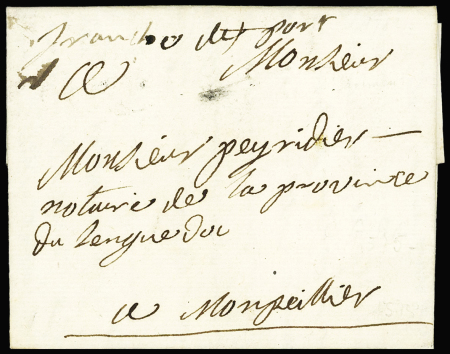 franche de port
a Monsieur
Monsieur peyridier
notaire de la province
du lenguedoc
a Monpeillier